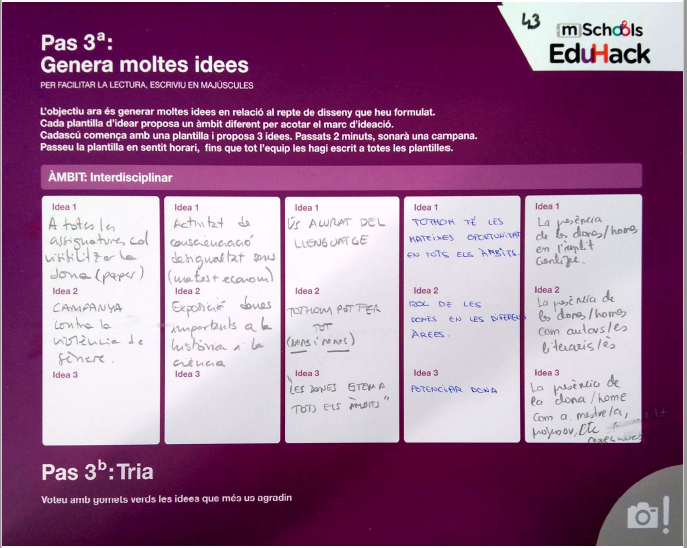 43
mSchools
EduHack
Pas 3ª:
Genera moltes idees
PER FACILITAR LA LECTURA, ESCRIVIU EN MAJÚSCULES
L'objectiu ara és generar moltes idees en relació al repte de disseny que heu formulat.
Cada plantilla d'idear proposa un àmbit diferent per acotar el marc d'ideació.
Cadascú comença amb una plantilla i proposa 3 idees. Passats 2 minuts, sonarà una campana.
Passeu la plantilla en sentit horari, fins que tot l'equip les hagi escrit a totes les plantilles.
ÀMBIT: Interdisciplinar
Idea 1
A totes les
assignatures, cal
visibilitzar la
dona (paper)
Idea 2
CAMPANYA
contra la
violència de
gènere.
Idea 3
Idea 1
Activitat de
conscienciació
desigualtat sous
(mates + economi)
Idea 2
Exposició dones
importants a la
història i la
ciència
Idea 3
Idea 1
ÚS ACURAT DEL
LLENGUATGE
Idea 2
TOTHOM POT FER
TOT
(NENS i NENES)
Idea 3
"LES DONES ESTEM A
TOTS ELS ÀMBITS"
Idea 1
TOTHOM TÉ LES
MATEIXES OPORTUNITAT
EN TOTS ELS ÀMBITS.
Idea 2
ROL DE LES
DONES EN LES DIFERENS
ÀREES.
Idea 3
POTENCIAR DONA
Idea 1
La presència
de les dones/homes
en l'àmbit
Idea 2
La presència de
les dones/homes
com autors/es
literaris/es
Idea 3
La presència de
la dona/home
com a mestre/a,
professor, etc
Pas 3ᵇ: Tria
Voteu amb gomets verds les idees que més us agradin